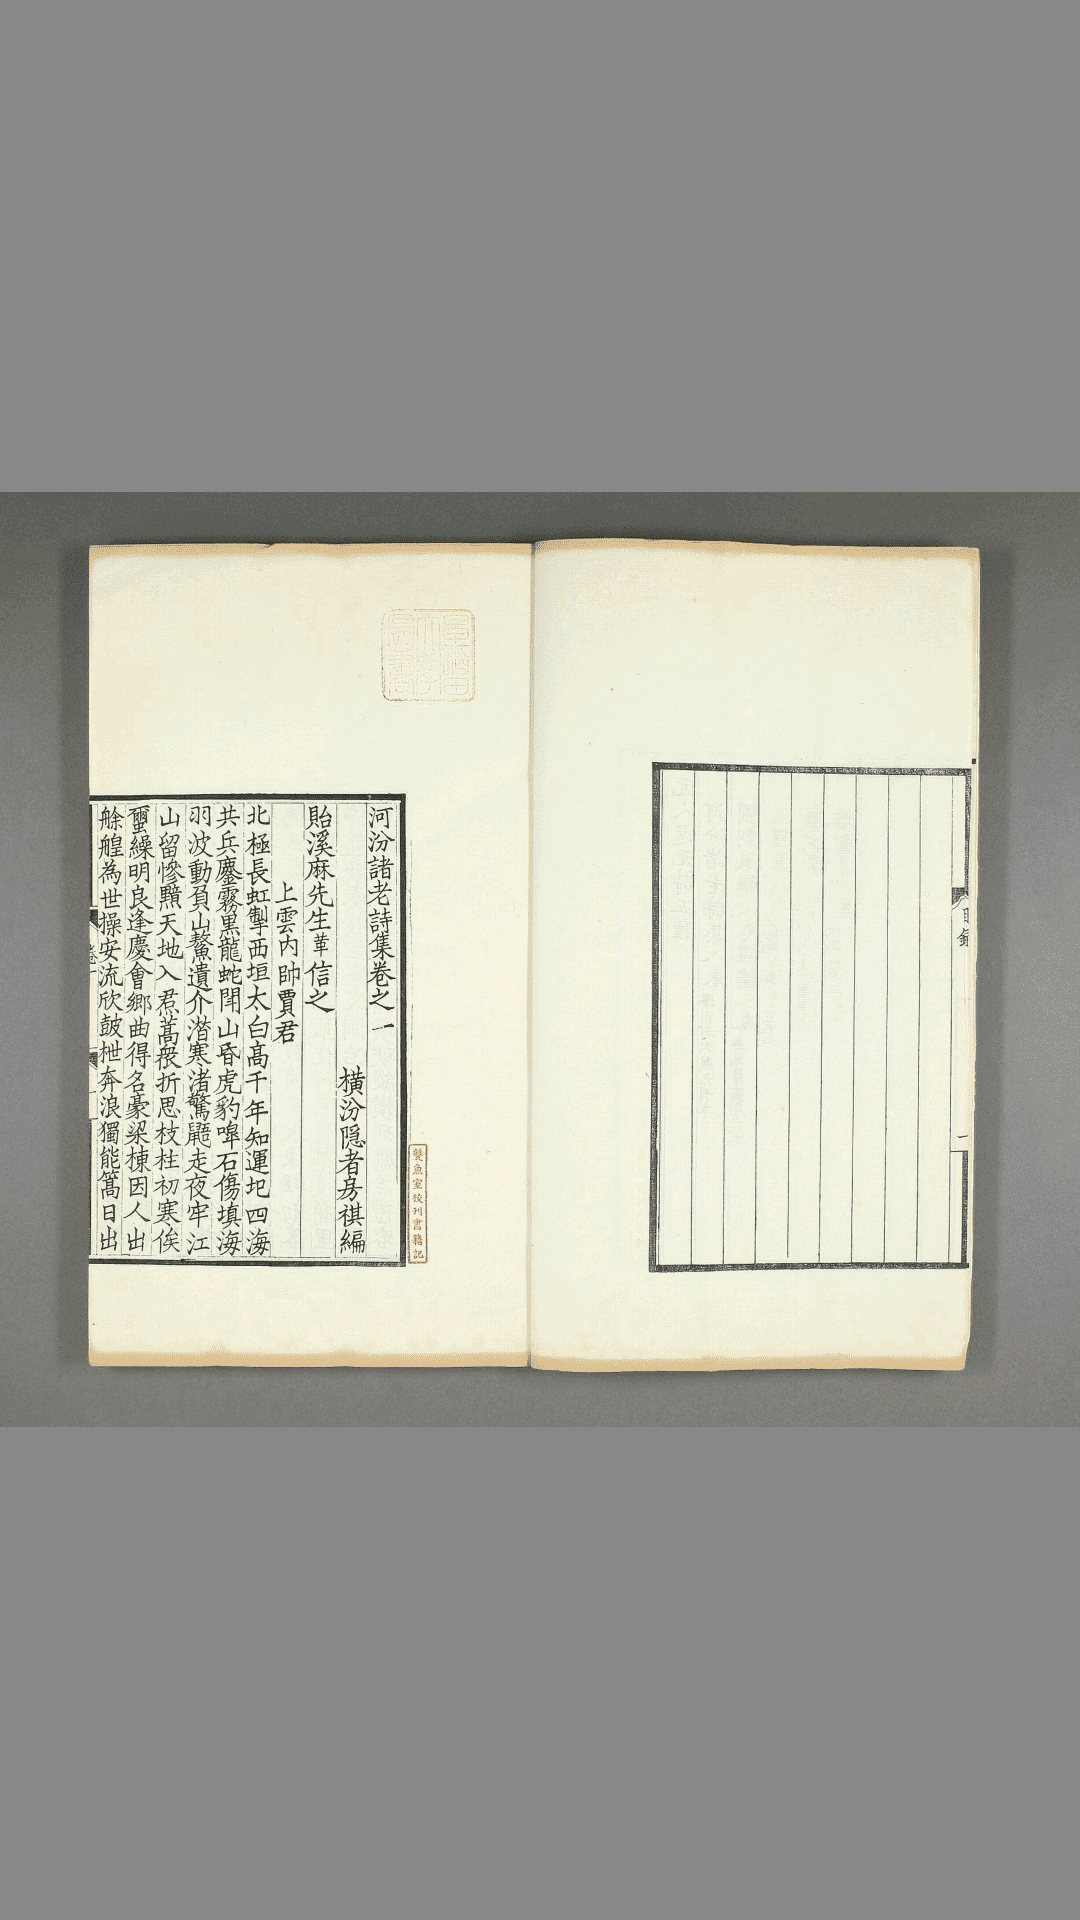 目録
一
河汾諸老詩集卷之一
橫汾隱者房祺編
貽溪麻先生革信之
上雲内帥賈君
北極長虹掣西垣太白高千年知運圯四海
共兵鏖霧黒龍蛇鬥山昏虎豹嘷石傷填海
羽波動負山鰲遺介潛寒渚驚鼯走夜牢江
山留慘黷天地入焄蒿衆折思枝柱初寒俟
璽繰明良逢慶會鄉曲得名豪梁棟因人出
艅艎為世操安流欣鼓枻奔浪獨能篙日出
雙魚室鋑刊書籍記